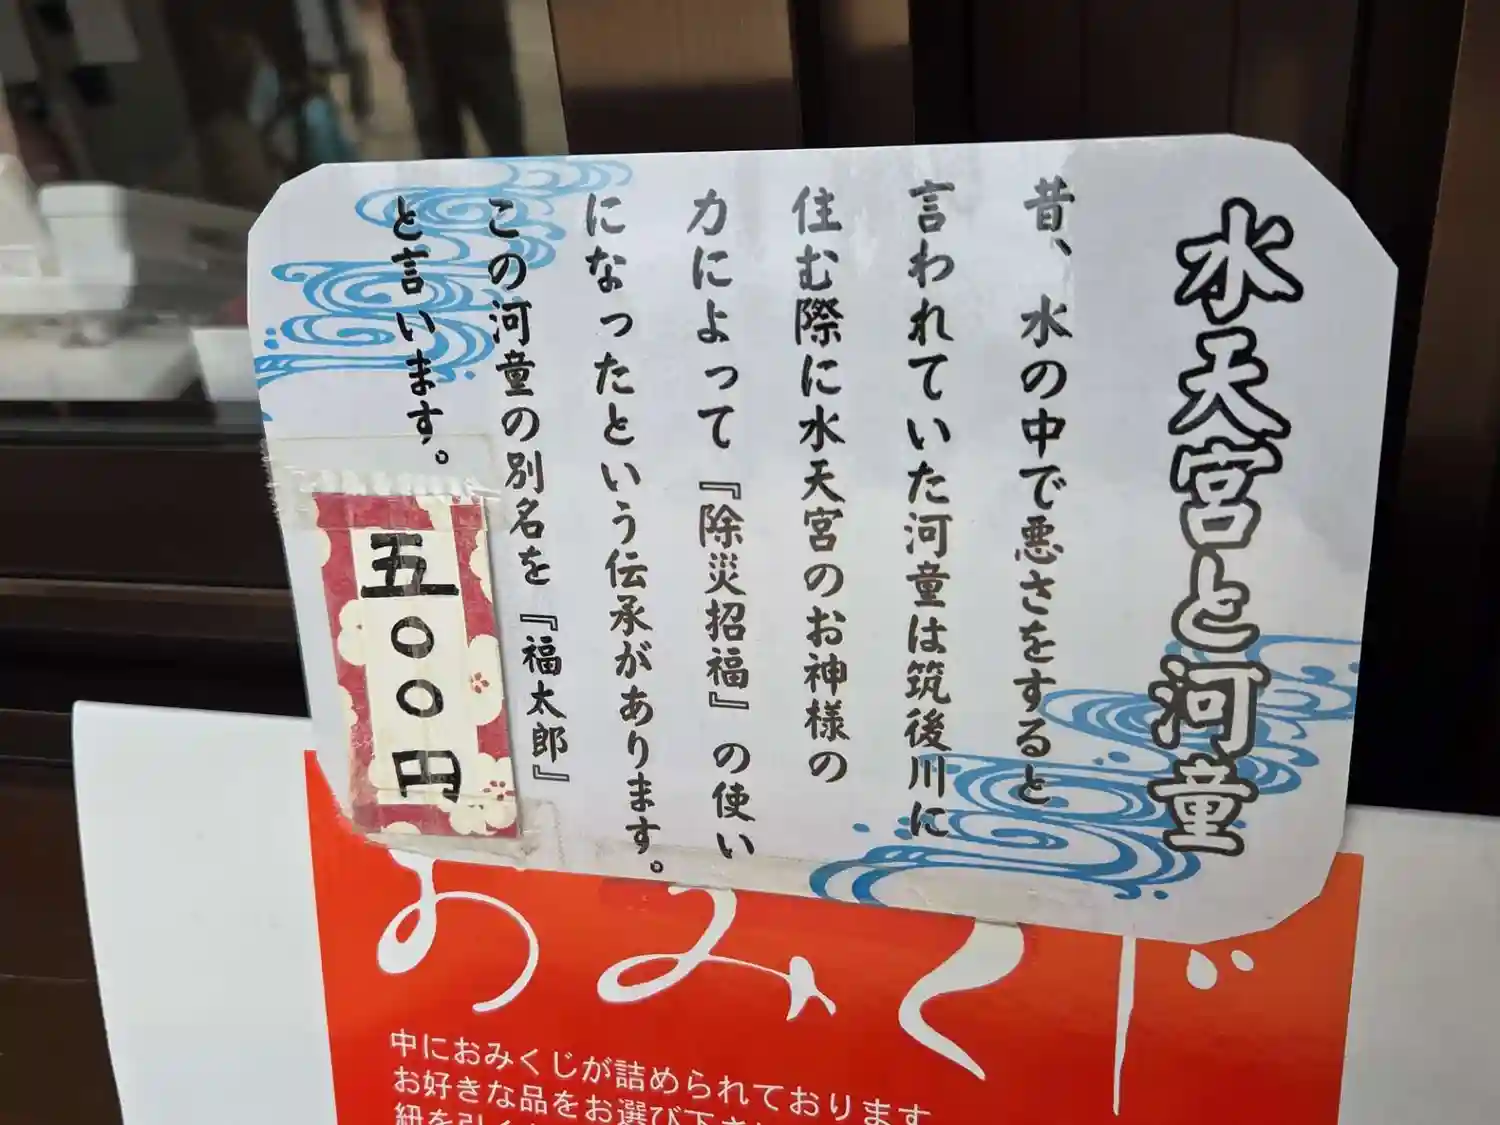 水天宮と河童
昔、水の中で悪さをすると
言われていた河童は筑後川に
住む際に水天宮のお神様の
力によって『除災招福』の使い
になったという伝承があります。
この河童の別名を『福太郎』
と言います。
五〇〇円
おみくじ
中におみくじが詰められております
お好きな品をお選び下さい
紐を引く